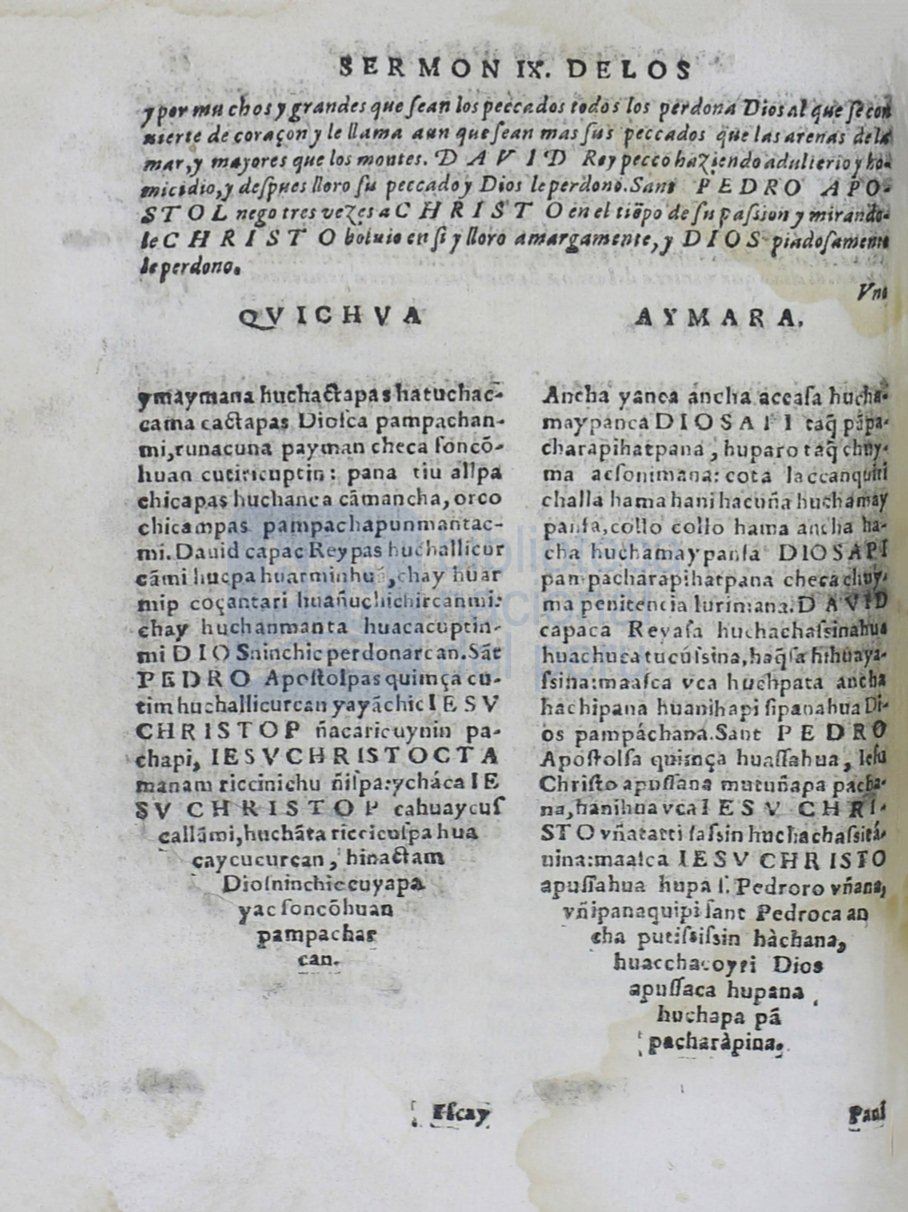 SERMON IX. DELOS
y por muchos y grandes que sean los peccados todos los perdona Dios al que se con
uierte de coraçon y le llama aun que sean mas sus peccados que las arenas dela
mar, y mayores que los montes. DAVID Rey pecco haziendo adulterio y ho-
micidio, y despues lloro su peccado y Dios le perdono. Sant PEDRO APO-
STOL nego tres vezes a CHRISTO en el tiẽpo de su passion y mirando-
le CHRISTO boluio en si y lloro amargamente, y DIOS piadosamente
le perdono.
Vno
QVICHVA
ymaymana huchactapas hatuchac-
cama cactapas Diosca pampachan-
mi, runacuna payman checa soncõ-
huan cutiricuptin: pana tiu allpa
chicapas huchanca cãmancha, orco
chicampas pampachapunmantac-
mi. Dauid capac Reypas huchallicur
cãmi hucpa huarminhuã, chay huar
mip coçantari huañuchichircanmi:
chay huchanmanta huacacuptin-
mi DIOSninchic perdonarcan. Sãt
PEDRO Apostolpas quimça cu-
tim huchallicurcan yayãchic IESV
CHRISTOP ñacaricuynin pa-
chapi, IESVCHRISTOCTA
manam riccinichu ñispa: ychãca IE
SV CHRISTOP cahuaycus
callãmi, huchãta riccicuspa hua
caycucurcan, hinactam
Diosninchic cuyapa
yac soncõhuan
pampachar
can.
AYMARA.
Ancha yanca ancha accasa hucha-
maypanca DIOSAPI taq̃ pãpa-
charapihatpana, huparo taq̃ chuy-
ma acsonimana: cota laccanquiri
challa hama hani hacuña huchamay
pansa, collo collo hama ancha ha-
cha huchamaypansa DIOSAPI
pan pacharapihatpana checa chuy-
ma penitencia lurimana. DAVID
capaca Reyasa huchachassinahua
huachuca tucússina, haq̃sa hihuaya-
ssina: maasca vca huchpata ancha
hachipana huanihapi sipanahua Di-
os pampáchana. Sant PEDRO
Apostolsa quimça huassahua, Iesu
Christo apussana mutuñapa pacha-
na, hanihua vca IESV CHRI-
STO vñatatti sassin huchachassitá-
nina: maasca IESV CHRISTO
apussahua hupa s. Pedroro vñana,
vñipanaquipi sant Pedroca an
cha putississin hàchana,
huacchacoyri Dios
apussaca hupana
huchapa pã
pacharàpina.
Iscay
Pauł